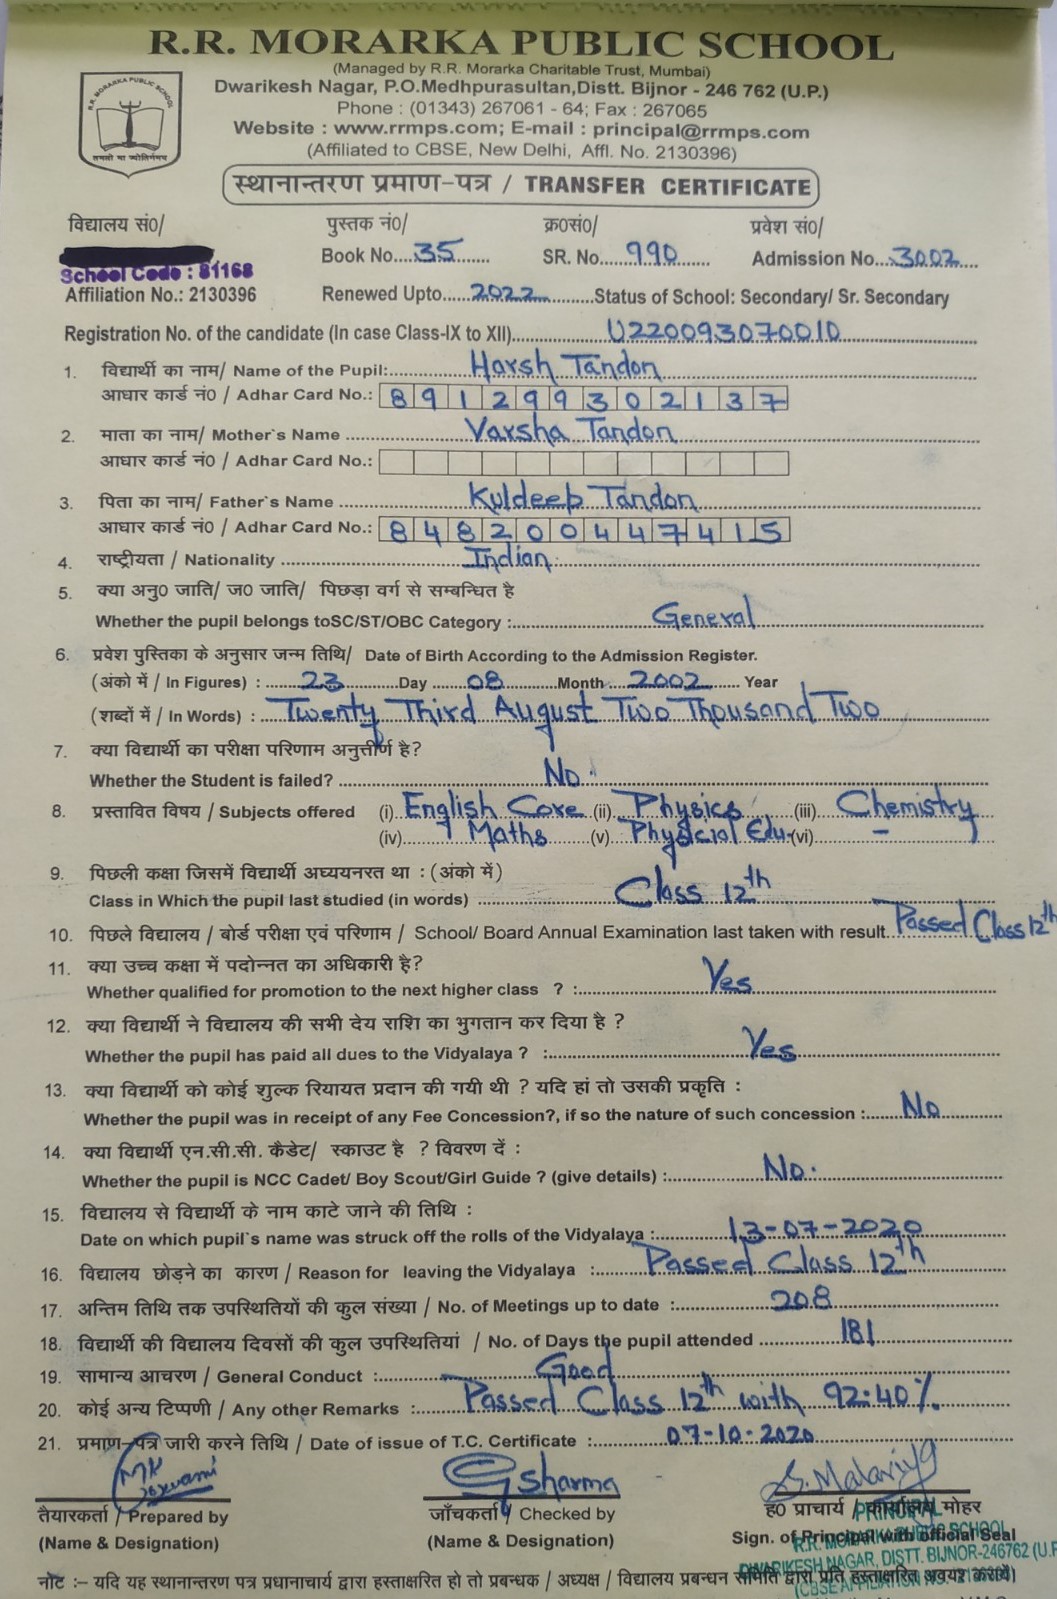 R.R. MORARKA PUBLIC SCHOOL
(Managed by R.R. Morarka Charitable Trust, Mumbai)
Dwarikesh Nagar, P.O.Medhpurasultan,Distt. Bijnor - 246 762 (U.P.)
Phone : (01343) 267061 - 64; Fax : 267065
Website : www.rrmps.com; E-mail : principal@rrmps.com
(Affiliated to CBSE, New Delhi, Affl. No. 2130396)
R.R. MORARKA PUBLIC SCHOOL
तमसो मा ज्योतिर्गमय
स्थानान्तरण प्रमाण-पत्र / TRANSFER CERTIFICATE
विद्यालय सं0/ पुस्तक नं0/ क्र0सं0/ प्रवेश सं0/
Book No....35....... SR. No...990....... Admission No...3002....
School Code : 81168
Affiliation No.: 2130396 Renewed Upto.....2022..........Status of School: Secondary/ Sr. Secondary
Registration No. of the candidate (In case Class-IX to XII)....................U220093070010
1. विद्यार्थी का नाम/ Name of the Pupil:................Harsh Tandon
आधार कार्ड नं0 / Adhar Card No.: 891299302137
2. माता का नाम/ Mother`s Name ....................Varsha Tandon
आधार कार्ड नं0 / Adhar Card No.:
3. पिता का नाम/ Father`s Name ....................Kuldeep Tandon
आधार कार्ड नं0 / Adhar Card No.: 848200447415
4. राष्ट्रीयता / Nationality ....................Indian
5. क्या अनु0 जाति/ ज0 जाति/ पिछड़ा वर्ग से सम्बन्धित है
Whether the pupil belongs toSC/ST/OBC Category :....................General
6. प्रवेश पुस्तिका के अनुसार जन्म तिथि/ Date of Birth According to the Admission Register.
(अंको में / In Figures) : ......23..........Day ......08..........Month ....2002...... Year
(शब्दों में / In Words) : ..Twenty Third August Two Thousand Two
7. क्या विद्यार्थी का परीक्षा परिणाम अनुत्तीर्ण है?
Whether the Student is failed? ....................No.
8. प्रस्तावित विषय / Subjects offered (i) English Core (ii) Physics (iii) Chemistry
(iv) Maths (v) Physicial Edu. (vi) -
9. पिछली कक्षा जिसमें विद्यार्थी अध्ययनरत था : (अंको में)
Class in Which the pupil last studied (in words) ....................Class 12th
10. पिछले विद्यालय / बोर्ड परीक्षा एवं परिणाम / School/ Board Annual Examination last taken with result..Passed Class 12th
11. क्या उच्च कक्षा में पदोन्नत का अधिकारी है?
Whether qualified for promotion to the next higher class ? :....................Yes
12. क्या विद्यार्थी ने विद्यालय की सभी देय राशि का भुगतान कर दिया है ?
Whether the pupil has paid all dues to the Vidyalaya ? :....................Yes
13. क्या विद्यार्थी को कोई शुल्क रियायत प्रदान की गयी थी ? यदि हां तो उसकी प्रकृति :
Whether the pupil was in receipt of any Fee Concession?, if so the nature of such concession :......No
14. क्या विद्यार्थी एन.सी.सी. कैडेट/ स्काउट है ? विवरण दें :
Whether the pupil is NCC Cadet/ Boy Scout/Girl Guide ? (give details) :....................No.
15. विद्यालय से विद्यार्थी के नाम काटे जाने की तिथि :
Date on which pupil`s name was struck off the rolls of the Vidyalaya :..........13-07-2020
16. विद्यालय छोड़ने का कारण / Reason for leaving the Vidyalaya :..........Passed Class 12th
17. अन्तिम तिथि तक उपस्थितियों की कुल संख्या / No. of Meetings up to date :..........208
18. विद्यार्थी की विद्यालय दिवसों की कुल उपस्थितियां / No. of Days the pupil attended ..........181
19. सामान्य आचरण / General Conduct :....................Good
20. कोई अन्य टिप्पणी / Any other Remarks :......Passed Class 12th with 92.40%.
21. प्रमाण-पत्र जारी करने तिथि / Date of issue of T.C. Certificate :..........07-10-2020
MK Goswami G Sharma S. Malaviya
तैयारकर्ता / Prepared by जाँचकर्ता / Checked by ह0 प्राचार्य / कार्यालय मोहर
(Name & Designation) (Name & Designation) Sign. of Principal with official Seal
PRINCIPAL
R.R. MORARKA PUBLIC SCHOOL
DWARIKESH NAGAR, DISTT. BIJNOR-246762 (U.P
(CBSE AFFILIATION NO.
नोट :– यदि यह स्थानान्तरण पत्र प्रधानाचार्य द्वारा हस्ताक्षरित हो तो प्रबन्धक / अध्यक्ष / विद्यालय प्रबन्धन समिति द्वारा प्रति हस्ताक्षरित अवश्य करायें)